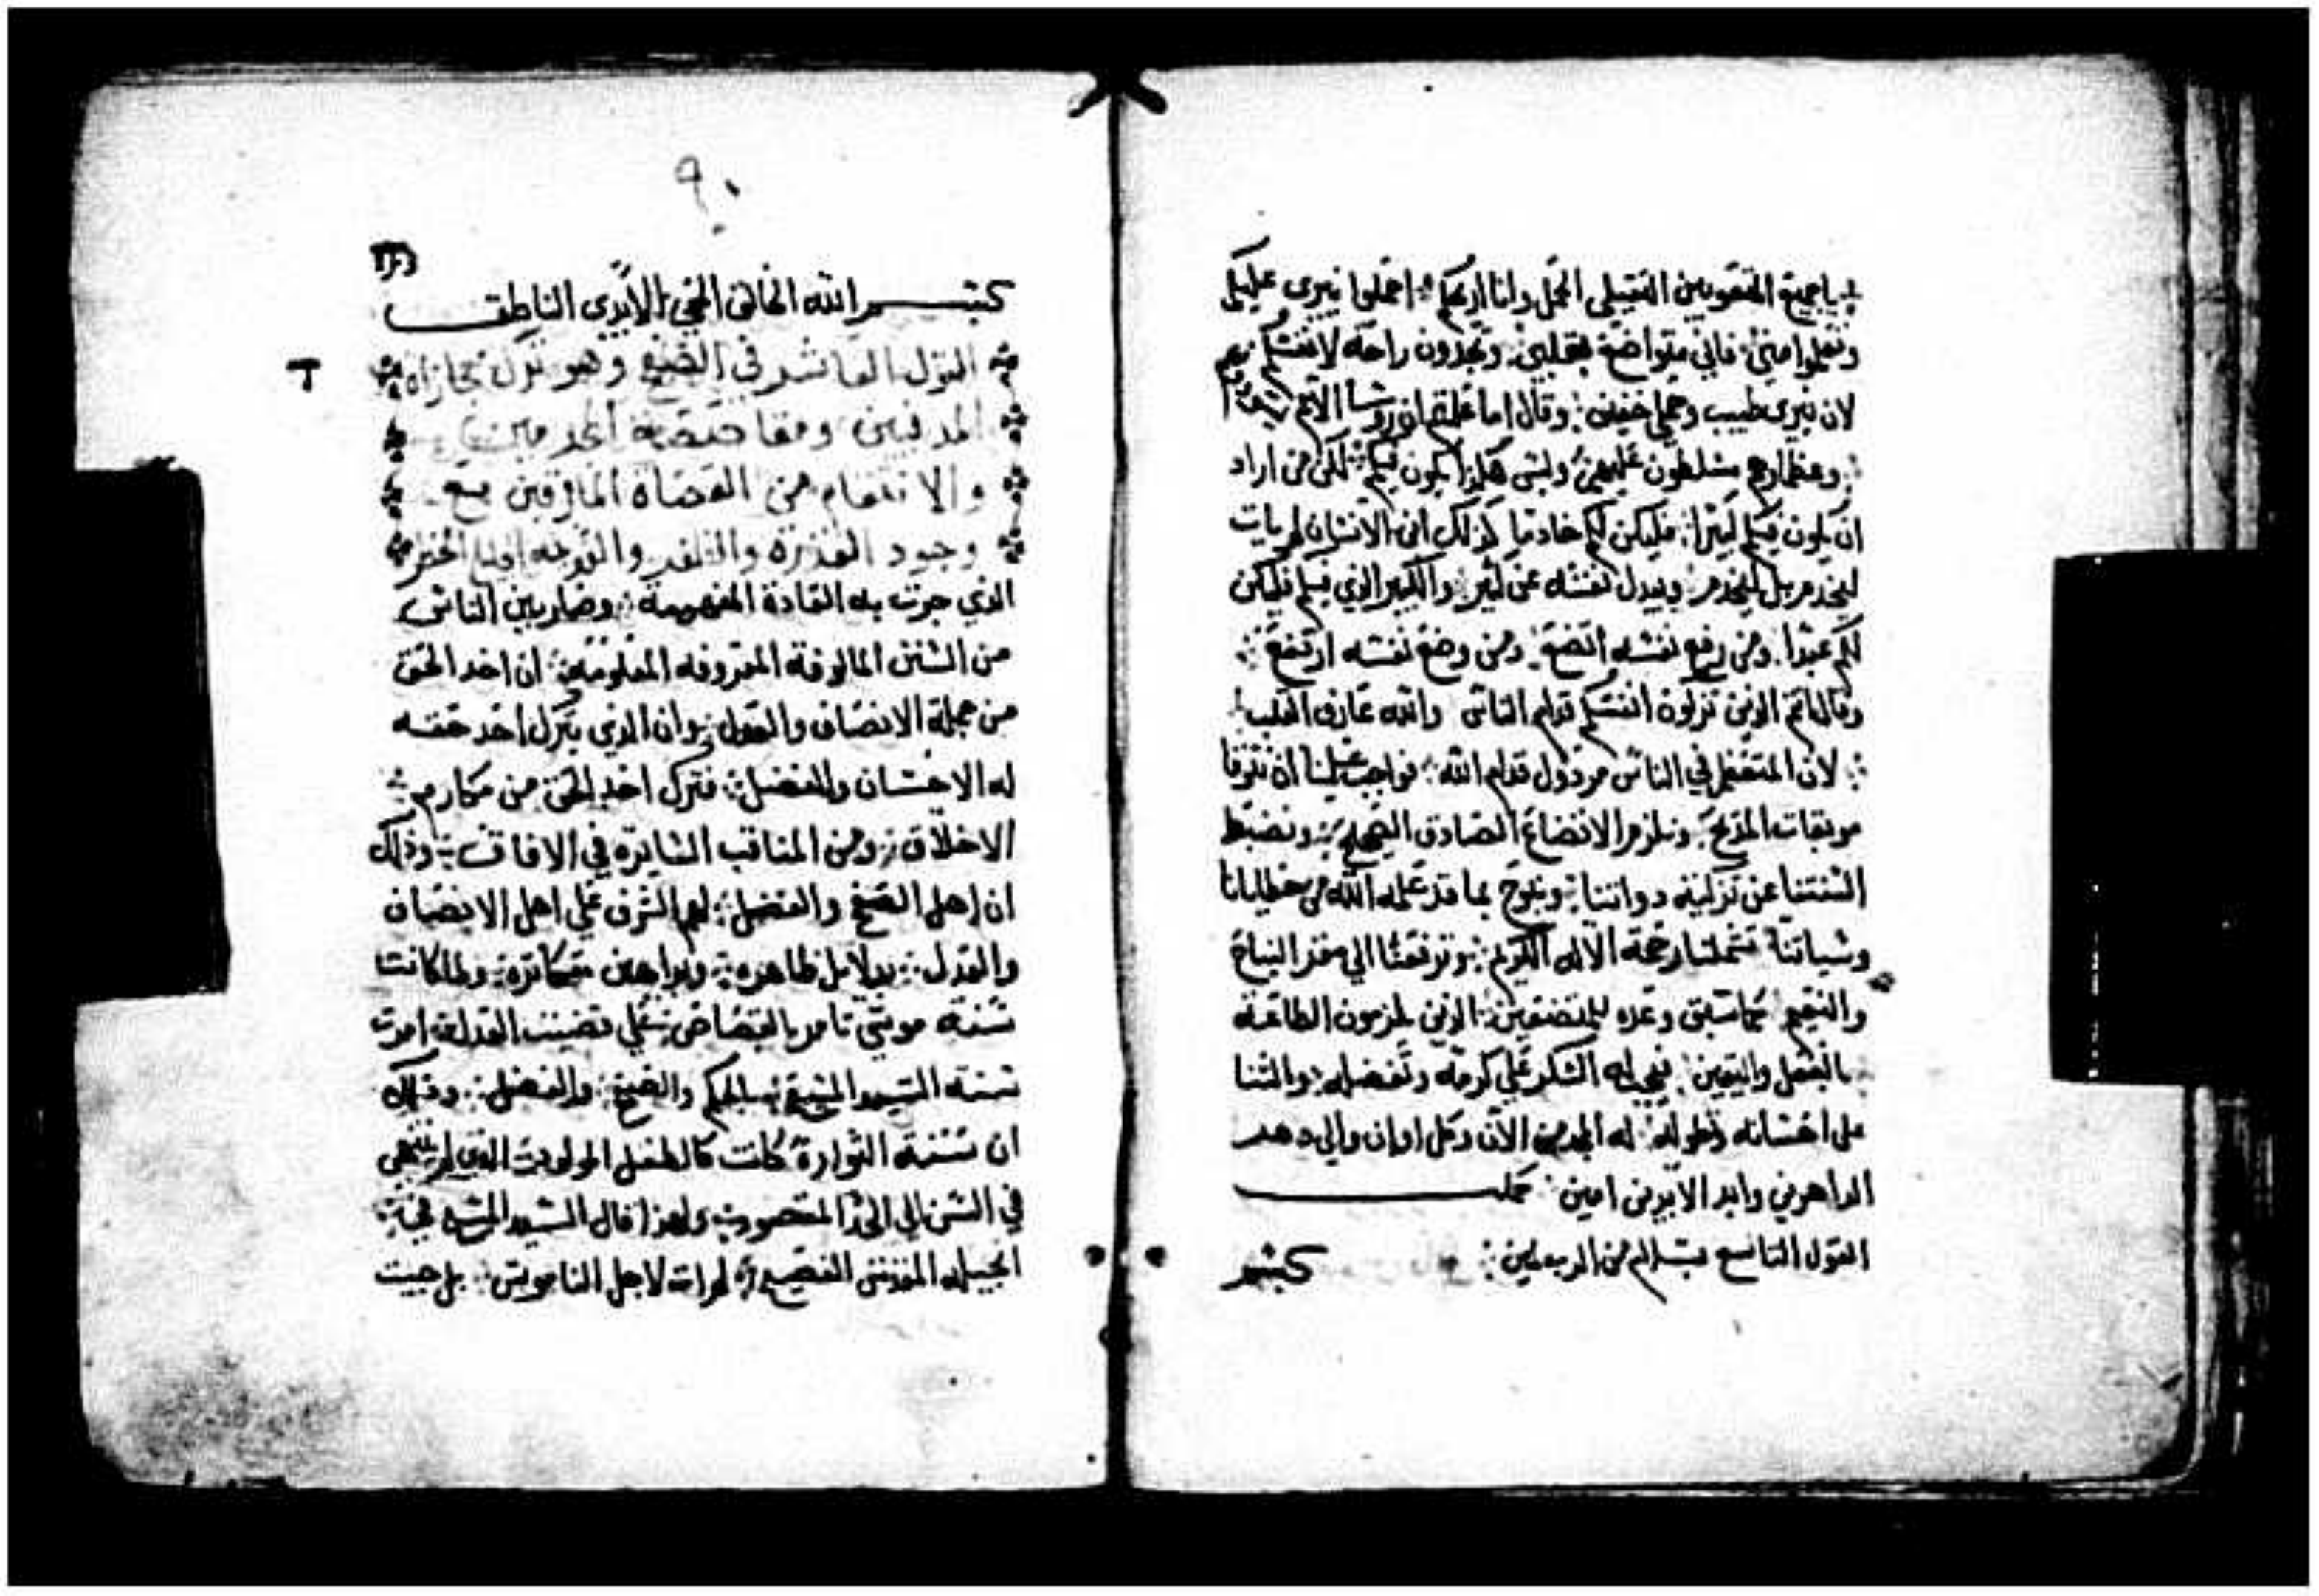 ياجميع المتعوبين الثقيلي الحمل وانا اريحكم احملوا نيري عليكم
وتعلموا مني فاني متواضع بقلبي وتجدون راحة لانفسكم
لان نيري طيب وحملي خفيف وقال اما علمتم ان روسا الامم
وعظماوهم مسلطون عليهم وليس هكذا يكون فيكم لكن من اراد
ان يكون فيكم كبيرا فليكن لكم خادما كذلك ابن الانسان لم يات
ليخدم بل ليخدم ويبدل نفسه عن كثير والكبير الذي فيكم فليكن
لكم عبدا ومن رفع نفسه اتضع ومن وضع نفسه ارتفع
وقال انتم الذين تزكون انفسكم قدام الناس والله عارف القلب
لان المتعظم في الناس مرذول قدام الله فواجب علينا ان نتوقا
موبقات المديح ونلزم الاتضاع الصادق الصحيح ونضبط
السنتنا عن تزكية دواتنا ونبوح بما قد علمه الله من خطايانا
وسياتنا تشملنا رحمة الاله الكريم وترفعنا الي مقر النياح
والنعيم كما سبق وعده للمتضعين الذين لزمون الطاعة
بالعقل واليقين فيجب له الشكر علي كرمه وتفضله والثنا
على احسانه وتطوله له المجد من الان وكل اوان والي دهر
الداهرين وابد الابدين امين كمل
القول التاسع بسلام من الرب امين
كبسم
٩٠
كبسم الله الخالق الحي الابدي الناطق
القول العاشر في الصفح وهو ترك مجازاه
المدنبين ومقاصصة المجرمين
والانتقام من العصاة المارقين مع
وجود القدرة والظفر والتوجه
الذي جرت به العادة المفهومة وصار بين الناس
من السنن المالوفة المعروفه المعلومة ان اخد الحق
من جملة الانصاف والعدل وان الذي يترك اخد حقه
له الاحسان والفضل فترك اخد الحق من مكارم
الاخلاق ومن المناقب السايره في الافاق وذلك
ان اهل الصفح والفضل لهم الشرف علي اهل الانصاف
والعدل بدلايل ظاهره وبراهين متكاتره ولما كانت
سنة موسي تامر بالقصاص علي قضيت العدل امرت
سنة السيد المسيح بالحلم والصفح والفضل وذلك
ان سنة التوراة كانت كالطفل المولود الذي لم ينتهي
في السن الي الحد المقصود ولهذا قال السيد المسيح في
انجيله المقدس الفصيح لم ات لاحل الناموس بل جيت